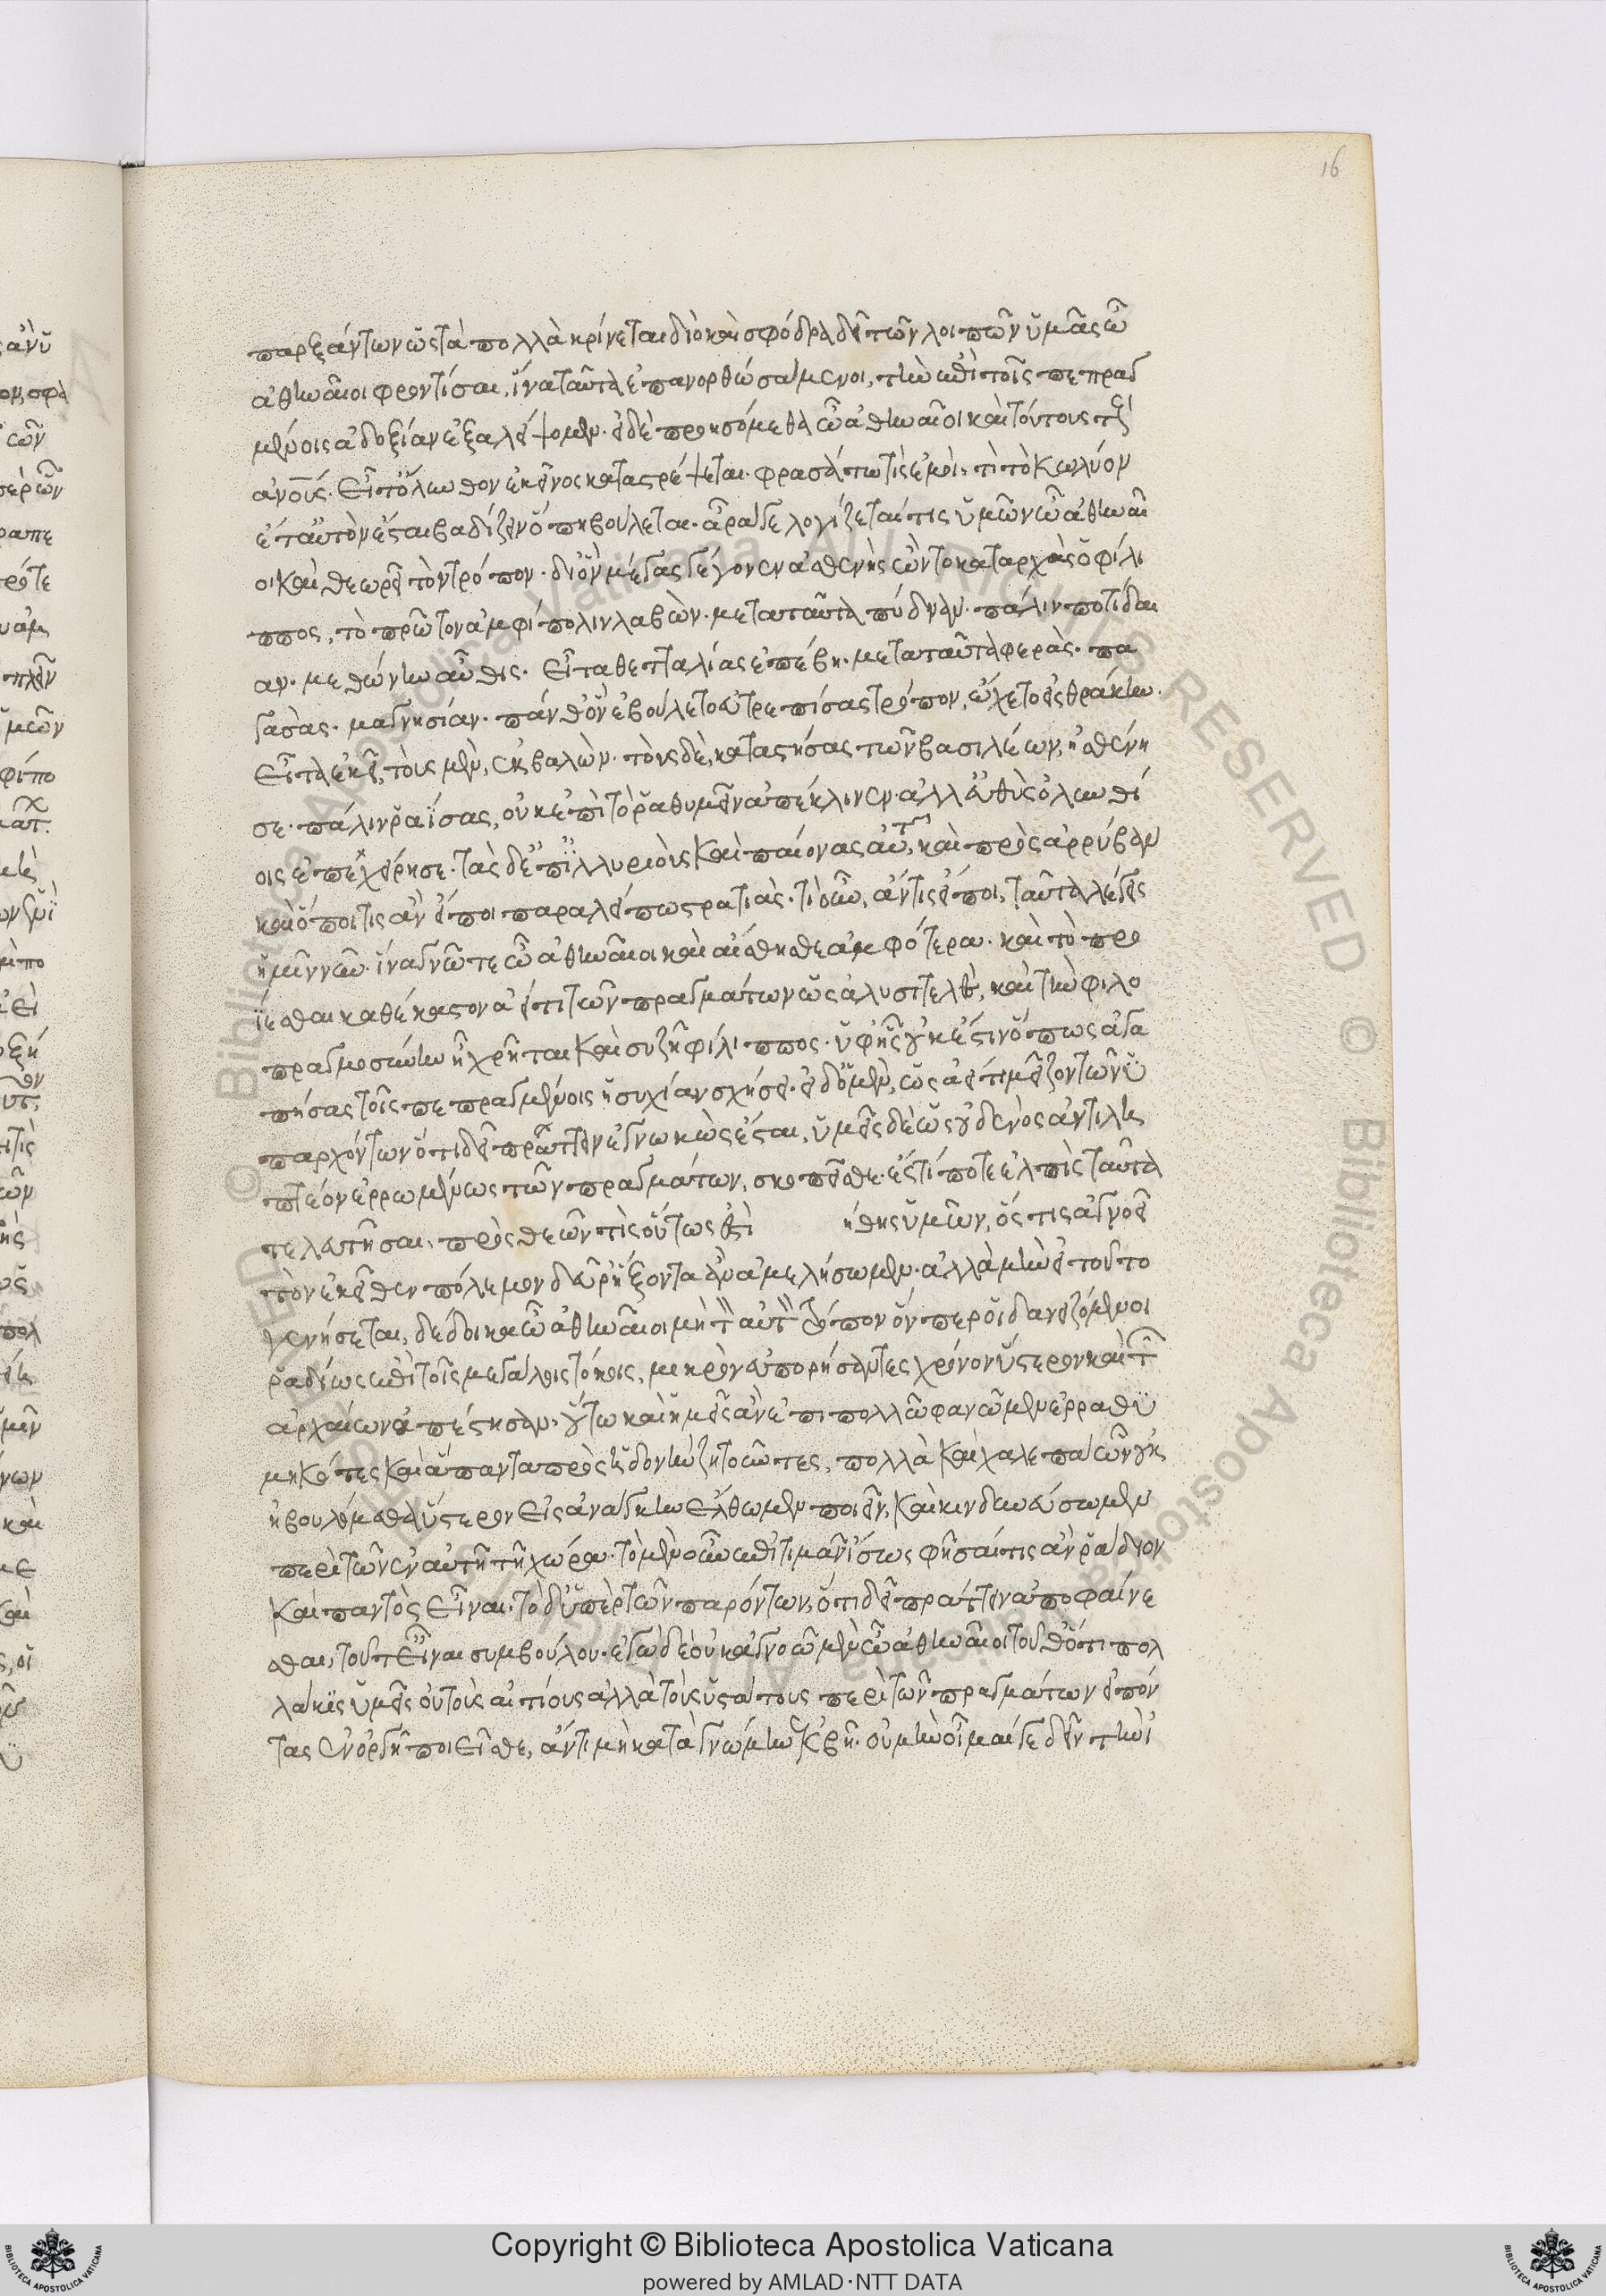 16
παρξάντων ὡς τὰ πολλὰ κρίνεται διὸ καὶ σφόδρα δεῖ τῶν λοιπῶν ὑμᾶς ὦ
ἀθηναῖοι φροντίσαι, ἵνα ταῦτα ἐπανορθωσάμενοι, τὴν ἐπὶ τοῖς πεπραγ
μένοις ἀδοξίαν ἐξαλείψομεν. εἰ δὲ προησόμεθα ὦ ἀθηναῖοι καὶ τούτους τοὺς
ἀνους. εἶτ' ὄλυνθον ἐκεῖνος καταστρέψεται. φρασάτω τὶς ἐμοὶ, τί τὸ κωλύον
ἔτ' αὐτὸν ἔσται βαδίζειν ὅπη βούλεται. ἆρά γε λογίζεταί τις ὑμῶν ὦ ἀθηναῖ
οι καὶ θεωρεῖ τὸν τρόπον. δι' ὃν μέγας γέγονεν ἀσθενὴς ὢν τὸ καταρχὰς ὁ φίλι
ππος, τὸ πρῶτον ἀμφίπολιν λαβὼν. μετὰ ταῦτα πύδναν. πάλιν ποτίδαι
αν. μεθώνην αὖθις. εἶτα θετταλίας ἐπέβη. μετὰ ταῦτα φερὰς. πα
γασὰς. μαγνησίαν. πάνθ' ὃν ἐβούλετο εὐτρεπίσας τρόπον, ὤχετο εἰς θράκην.
εἶτα ἐκεῖ, τοὺς μὲν, ἐκβαλὼν. τοὺς δὲ, καταστήσας τῶν βασιλέων, ἠσθένη
σε. πάλιν ῥαΐσας, οὐκ ἐπὶ τὸ ῥαθυμεῖν ἀπέκλινεν. ἀλλ' εὐθὺς ὀλυνθί
οις ἐπεχείρησε. τὰς δ' ἐπ' ἰλλυριοὺς καὶ παίονας αὐτ, καὶ πρὸς ἀρρύβαν
καὶ ὅποι τις ἂν εἴποι παραλείπω στρατιὰς. τί οὖν, ἄν τις εἴποι, ταῦτα λέγεις
ἡμῖν νῦν. ἵνα γνῶτε ὦ ἀθηναῖοι καὶ αἴσθησθε ἀμφότερα. καὶ τὸ προ
ΐεσθαι καθέκαστον ἀεί τι τῶν πραγμάτων ὡς ἀλυσιτελὲς, καὶ τὴν φιλο
πραγμοσύνην ᾗ χρῆται καὶ συζῇ φίλιππος. ὑφ' ἧς οὐκ ἔστιν ὅπως ἀγα
πήσας τοῖς πεπραγμένοις ἡσυχίαν σχήσει. εἰ δ' ὁ μὲν, ὡς ἀεί τι μεῖζον τῶν ὑ
παρχόντων ὅτι δεῖ πράττειν ἐγνωκὼς ἔσται, ὑμεῖς δὲ ὡς οὐδενὸς ἀντιλη
πτέον ἐρρωμένως τῶν πραγμάτων, σκοπεῖσθε. εἰς τί ποτε ἐλπὶς ταῦτα
τελευτῆσαι. πρὸς θεῶν τὶς οὕτως ἐστὶ ήθης ὑμῶν, ὅστις ἀγνοεῖ
τὸν ἐκεῖθεν πόλεμον δεῦρ' ἥξοντα ἂν ἀμελήσωμεν. ἀλλὰ μὴν εἰ τοῦτο
γενήσεται, δέδοικα ὦ ἀθηναῖοι μὴ τ αὐτ τρόπον ὅνπερ οἱ δανειζόμενοι
ῥαδίως ἐπὶ τοῖς μεγάλοις τόκοις, μικρὸν εὐπορήσαντες χρόνον ὕστερον καὶ τῶν
ἀρχαίων ἀπέστησαν. οὕτω καὶ ἡμεῖς ἂν ἐπι πολλῶ φανῶμεν ἐρραθυ
μηκότες καὶ ἅπαντα πρὸς ἡδονὴν ζητοῦντες, πολλὰ καὶ χαλεπὰ ὧν οὐκ
ἠβουλόμεθα ὕστερον εἰς ἀνάγκην ἔλθωμεν ποιεῖν, καὶ κινδυνεύσωμεν
περὶ τῶν ἐν αὐτῇ τῇ χώρα. τὸ μὲν οὖν ἐπιτιμᾶν ἴσως φῆσαί τις ἂν ῥάδιον
καὶ παντὸς εἶναι. τὸ δ' ὑπὲρ τῶν παρόντων, ὅτι δεῖ πράττειν ἀποφαίνε
σθαι, τοῦτ' εἶναι συμβούλου. ἐγὼ δὲ οὐκ ἀγνοῶ μὲν ὦ ἀθηναῖοι τοῦθ' ὅτι πολ
λάκις ὑμεῖς οὐ τοὺς αἰτίους ἀλλὰ τοὺς ὑστάτους περὶ τῶν πραγμάτων εἰπόν
τας ἐν ὀργῇ ποιεῖσθε, ἄν τι μὴ κατὰ γνώμην ἐκβῇ. οὐ μὴν οἶμαί γε δεῖν τὴν ἰ
Copyright © Biblioteca Apostolica Vaticana
powered by AMLAD·NTT DATA